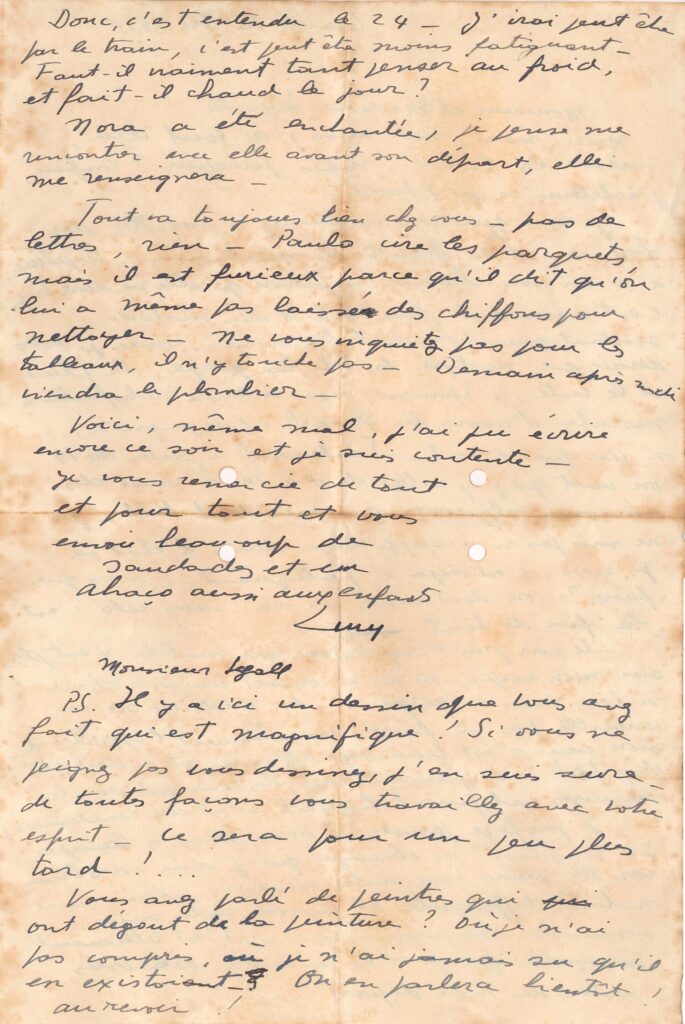 Donc, c'est entendu le 24 — J'irai peut être
par le train, c'est peut être moins fatiguant —
Faut-il vraiment tant penser au froid,
et fait-il chaud le jour?
Nora a été enchantée, je pense me
rencontrer avec elle avant son départ, elle
me renseignera —
Tout va toujours bien chez vous — pas de
lettres, rien — Paulo cire les parquets
mais il est furieux parce qu'il dit qu'on
lui a même pas laissé des chiffons pour
nettoyer — Ne vous inquietez pas pour les
tableaux, il n'y touche pas — Demain après midi
viendra le plombier —
Voici, même mal, j'ai pu écrire
encore ce soir et je suis contente —
je vous remercie de tout
et pour tout et vous
envoie beaucoup de
saudades et un
abraço aussi aux enfants
Lucy
Monsieur Segall
P.S. Il y a ici un dessin que vous avez
fait qui est magnifique! Si vous ne
peignez pas vous dessinez, j'en suis sure —
de toutes façons vous travaillez avec votre
esprit — ce sera pour un peu plus
tard!....
Vous avez parlé de peintres qui
ont dégout de la peinture? Où je n'ai
pas compris, où je n'ai jamais su qu'il
en existaient — ? On en parlera bientôt!
au revoir!